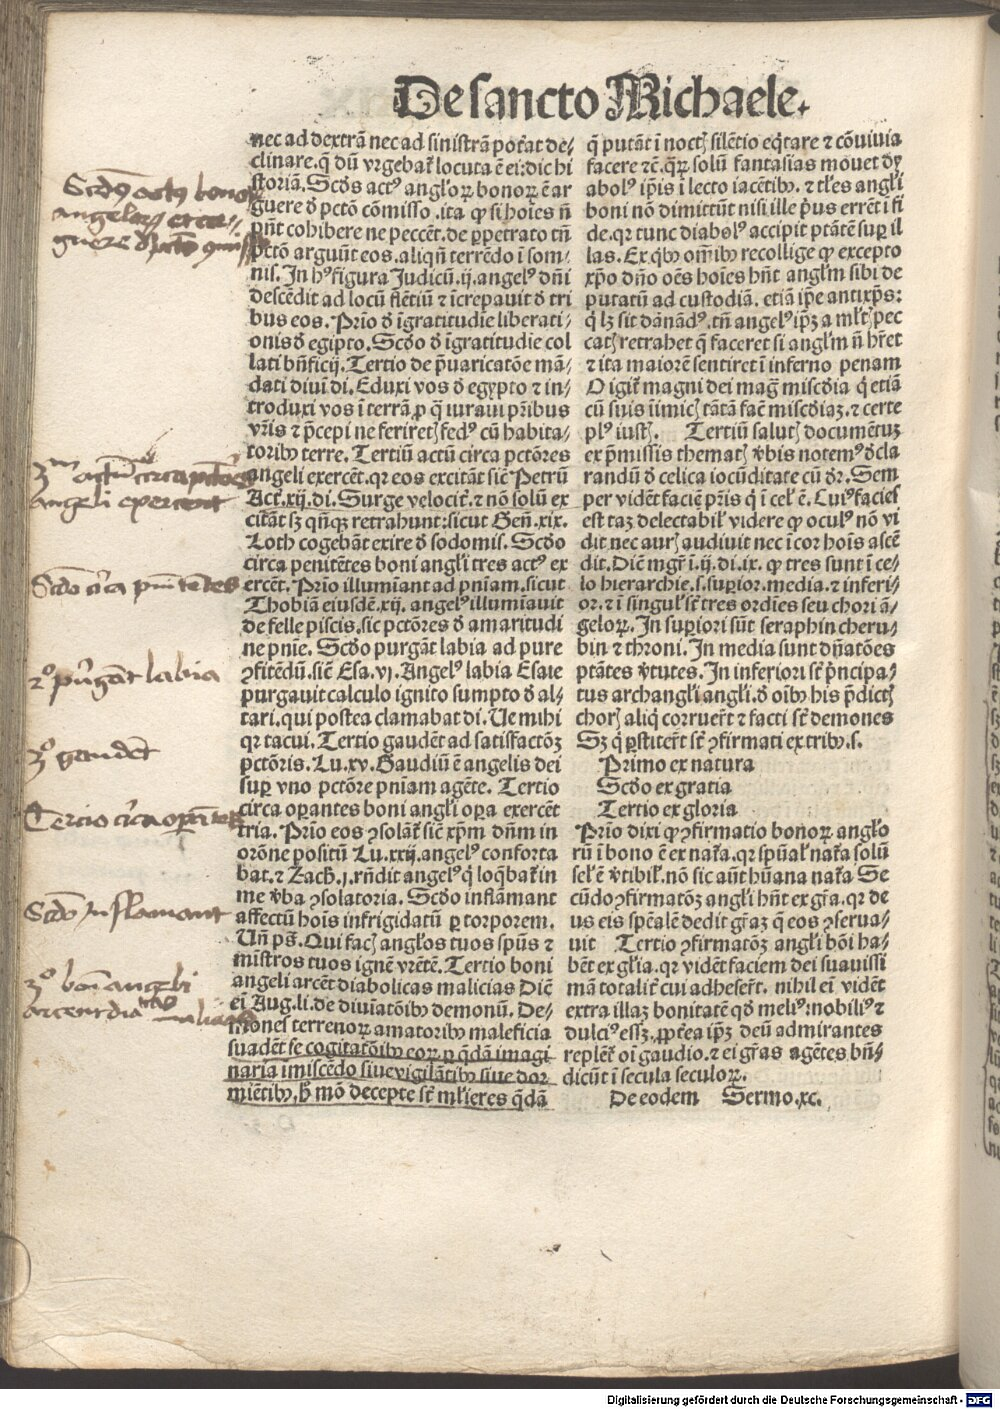 De sancto Michaele.
nec ad dextrã nec ad sinistrã pot̃at de⸗
clinare. q̃ dũ vrgebat̃ locuta ẽ ei: dic hi
storiã. Scd̃s actꝰ angl̃oꝝ bonoꝝ ẽ ar
guere d̃ pctõ cõmisso. ita ꝙ si hoĩes ñ
pñt cohibere ne peccẽt. de ꝑpetrato tñ
pctõ arguũt eos. aliqñ terrẽdo ĩ som⸗
nis. In hꝰ figura Judicũ. ij. angelꝰ dñi
descẽdit ad locũ flẽtiũ ⁊ ĩcrepauit d̃ tri
bus eos. Prĩo d̃ ĩgratitudĩe liberati⸗
onis d̃ egipto. Scd̃o d̃ ĩgratitudĩe col
lati bñficij. Tertio de p̃uaricatõe mã⸗
dati diuĩ di. Eduxi vos d̃ egypto ⁊ in⸗
troduxi vos ĩ terrã ꝓ q̃ iuraui pr̃ibus
vr̃is ⁊ p̃cepi ne feriretꝭ fedꝰ cũ habita⸗
toribꝰ terre. Tertiũ actũ circa pctõres
angeli exercẽt. qr eos excitãt sic̃ Petrũ
Act̃. xij. di. Surge velocit̃. ⁊ nõ solũ ex
citãt sꝫ qñqꝫ retrahunt: sicut Geñ. xix.
Loth cogebãt exire d̃ sodomis. Scd̃o
circa penitẽtes boni angl̃i tres actꝰ ex
ercẽt. Prĩo illumĩant ad pñiam. sicut
Thobiã eiusdẽ. xij. angelꝰ illumĩauit
de felle piscis. sic pctõres d̃ amaritudi
ne pnĩe. Scd̃o purgãt labia ad pure
ꝯfitẽdũ. sic̃ Esa. vj. Angelꝰ labia Esaie
purgauit calculo ignito sumpto d̃ al⸗
tari. qui postea clamabat di. Ue mihi
qr tacui. Tertio gaudẽt ad satisfactõꝫ
pctõris. Lu. xv. Gaudiũ ẽ angelis dei
suꝑ vno pctõre pniam agẽte. Tertio
circa oꝑantes boni angl̃i oꝑa exercẽt
tria. Prĩo eos ꝯsolãt̃ sic̃ xp̃m dñm in
orõne positũ Lu. xxij. angelꝰ conforta
bat. ⁊ Zach̃. j. rñdit angelꝰ q̃ loq̃bat̃ in
me v̓ba ꝯsolatoria. Scd̃o inflãmant
affectũ hoĩs infrigidatũ ꝑ torporem.
Uñ pš. Qui facꝭ angl̃os tuos spũs ⁊
mĩstros tuos ignẽ vrẽtẽ. Tertio boni
angeli arcẽt diabolicas malicias Dic̃
ei Aug. li. de diuĩatõibꝰ demonũ. De⸗
mones terrenoꝝ amatoribꝰ maleficia
suadẽt se cogitatõibꝰ eoꝝ ꝑ q̃dã imagi
naria imiscẽdo siue vigilãtibꝰ siue dor
miẽtibꝰ, h̃ mõ decepte st̃ ml̃ieres q̃dã
q̃ putãt ĩ noctꝭ silẽtio eq̃tare ⁊ cõuiuia
facere ⁊c̃. q̃ꝝ solũ fantasias mouet dy
abolꝰ ip̃is ĩ lecto iacẽtibꝰ. ⁊ tl̃es angl̃i
boni nõ dimittũt nisi ille p̓us errẽt ĩ fi
de. qr tunc diabolꝰ accipit ptãtẽ suꝑ il
las. Ex q̃bꝰ om̃ibꝰ recollige ꝙ excepto
xp̃o dño oẽs hoĩes hñt angl̃m sibi de
putatũ ad custodiã. etiã ip̃e antixp̃s:
q̃ lꝫ sit dãnãdꝰ. tñ angelꝰ ip̃ꝫ a ml̃tꝭ pec
catꝭ retrahet q̃ faceret si angl̃m ñ hr̃et
⁊ ita maiorẽ sentiret ĩ inferno penam
O igit̃ magni dei mag̃ misc̃dia q̃ etiã
cũ suis inĩmicꝭ tãtã fac̃ misc̃diaꝫ. ⁊ certe
plꝰ iustꝭ. Tertiũ salutꝭ documẽtuꝫ
ex p̃missis thematꝭ v̓bis notemꝰ d̃cla
randũ d̃ celica iocũditate cũ dr̃. Sem
per vidẽt faciẽ pr̃is q̃ ĩ cel̃ ẽ. Cuiꝰ facies
est taꝫ delectabil̃ videre ꝙ oculꝰ nõ vi
dit nec aurꝭ audiuit nec ĩ cor hoĩs ascẽ
dit. Dic̃ mgr̃ ĩ. ij. di. ix. ꝙ tres sunt ĩ ce⸗
lo hierarchie. s. suꝑior. media. ⁊ inferi⸗
or. ⁊ ĩ singulꝭ st̃ tres ordĩes seu chori ã⸗
geloꝝ. In suꝑiori sũt seraphin cheru⸗
bin ⁊ throni. In media sunt dñatões
ptãtes v̓tutes. In inferiori st̃ p̓ncipa⸗
tus archangl̃i angl̃i. d̃ oĩbꝰ his p̃dictꝭ
chorꝭ aliq̃ corruer̃t ⁊ facti st̃ demones
Sꝫ q̃ ꝑstiter̃t st̃ ꝯfirmati ex tribꝰ. s.
Primo ex natura
Scd̃o ex gratia
Tertio ex gloria
Prĩo dixi ꝙ ꝯfirmatio bonoꝝ angl̃o
rũ ĩ bono ẽ ex nat̃a. qr spũal̃ nat̃a solũ
sel̃ ẽ v̓tibil̃. nõ sic aũt hũana nat̃a Se
cũdo ꝯfirmatõꝫ angl̃i hñt ex gr̃a. qr de
us eis sp̃ealẽ dedit gr̃aꝫ q̃ eos ꝯserua⸗
uit Tertio ꝯfirmatõꝫ angl̃i bõi ha⸗
bẽt ex gl̃ia. qr vidẽt faciem dei suauissi
mã totalit̃ cui adheser̃t. nihil ei vidẽt
extra illaꝫ bonitatẽ qd̃ meliꝰ: nobiliꝰ ⁊
dulciꝰ essꝫ. ꝓpt̃ea ip̃ꝫ deũ admirantes
replẽt̃ oĩ gaudio. ⁊ ei gr̃as agẽtes bñ⸗
dicũt ĩ secula seculoꝝ.
De eodem Sermo. xc.
Scd̃ꝰ actꝰ bonoꝝ
angeloꝝ est ar⸗
guere d̃ pctõ ꝯmisso
3ᵐ actũ circa pctõres
angeli exercent
Scd̃o circa pnĩtẽtes
2º purgãt labia
3º gaudẽt
Tercio circa oꝑãtes
Scd̃o inflammant
3º boñ angeli
arcent dia⸗
malicias
Digitalisierung gefördert durch die Deutsche Forschungsgemeinschaft - DFG